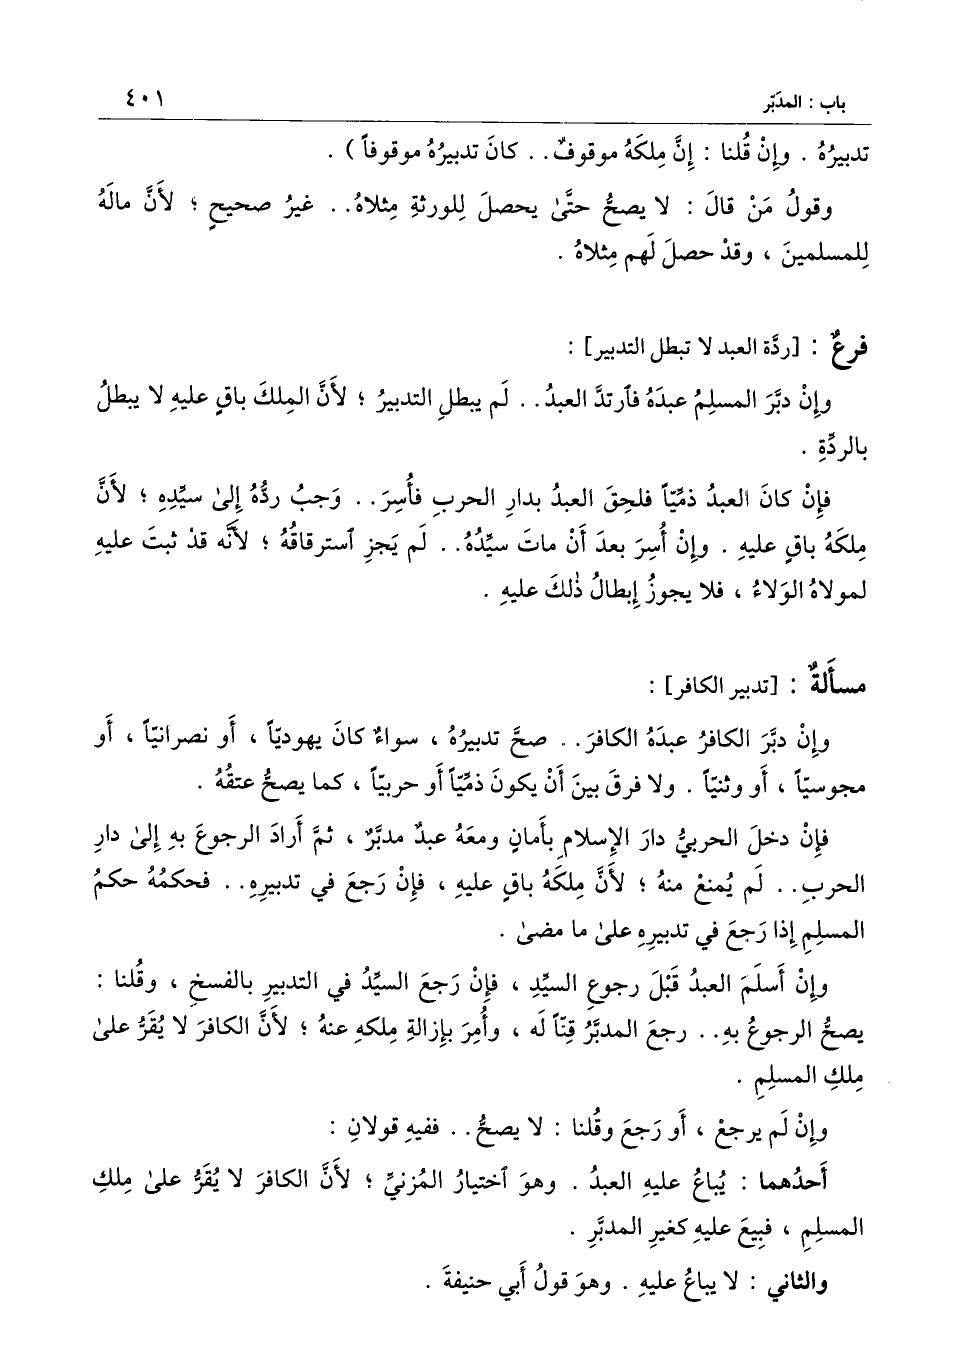 باب : المدبّر ٤٠١
تدبيرُهُ . وإِنْ قُلنا : إِنَّ مِلكَهُ موقوفٌ . . كانَ تدبيرُهُ موقوفاً ) .
وقولُ مَنْ قالَ : لا يصحُّ حتَّىٰ يحصلَ لِلورثةِ مِثلاهُ . . غيرُ صحيحٍ ؛ لأَنَّ مالَهُ
لِلمسلمينَ ، وقدْ حصلَ لَهم مِثلاهُ .
فرعٌ : [ردَّة العبد لا تبطل التدبير] :
وإِنْ دبَّرَ المسلِمُ عبدَهُ فٱرتدَّ العبدُ . . لَم يبطلِ التدبيرُ ؛ لأَنَّ المِلكَ باقٍ عليهِ لا يبطلُ
بالردَّةِ .
فإِنْ كانَ العبدُ ذمِّيّاً فلحِقَ العبدُ بدارِ الحربِ فأُسِرَ . . وَجبُ ردُّهُ إِلىٰ سيِّدِهِ ؛ لأَنَّ
مِلكَهُ باقٍ عليهِ . وإِنْ أُسِرَ بعدَ أَنْ ماتَ سيِّدُهُ . . لَم يَجزِ ٱسترقاقُهُ ؛ لأَنَّه قدْ ثبتَ عليهِ
لمولاهُ الوَلاءُ ، فلا يجوزُ إِبطالُ ذٰلكَ عليهِ .
مسأَلةٌ : [تدبير الكافر] :
وإِنْ دبَّرَ الكافرُ عبدَهُ الكافرَ . . صحَّ تدبيرُهُ ، سواءٌ كانَ يهوديّاً ، أَو نصرانيّاً ، أَو
مجوسيّاً ، أَو وثنيّاً . ولا فرقَ بينَ أَنْ يكونَ ذمِّيّاً أَو حربيّاً ، كما يصحُّ عتقُهُ .
فإِنْ دخلَ الحربيُّ دارَ الإِسلامِ بأَمانٍ ومعَهُ عبدٌ مدبَّرٌ ، ثمَّ أَرادَ الرجوعَ بهِ إِلىٰ دارِ
الحربِ . . لَم يُمنعْ منهُ ؛ لأَنَّ مِلكَهُ باقٍ عليهِ ، فإِنْ رَجعَ في تدبيرِهِ . . فحكمُهُ حكمُ
المسلِمِ إِذا رَجعَ في تدبيرِهِ علىٰ ما مضىٰ .
وإِنْ أَسلَمَ العبدُ قَبْلَ رجوعِ السيِّدِ ، فإِنْ رَجعَ السيِّدُ في التدبيرِ بالفسخِ ، وقُلنا :
يصحُّ الرجوعُ بهِ . . رجعَ المدبَّرُ قِنّاً لَه ، وأُمِرَ بإِزالةِ مِلكهِ عنهُ ؛ لأَنَّ الكافرَ لا يُقَرُّ علىٰ
مِلكِ المسلِمِ .
وإِنْ لَم يرجعْ ، أَو رَجعَ وقُلنا : لا يصحُّ . . ففيهِ قولانِ :
أَحدُهما : يُباعُ عليهِ العبدُ . وهوَ ٱختيارُ المُزنيِّ ؛ لأَنَّ الكافرَ لا يُقَرُّ علىٰ مِلكِ
المسلِمِ ، فبِيعَ عليهِ كغيرِ المدبَّرِ .
والثاني : لا يباعُ عليهِ . وهوَ قولُ أَبي حنيفةَ .